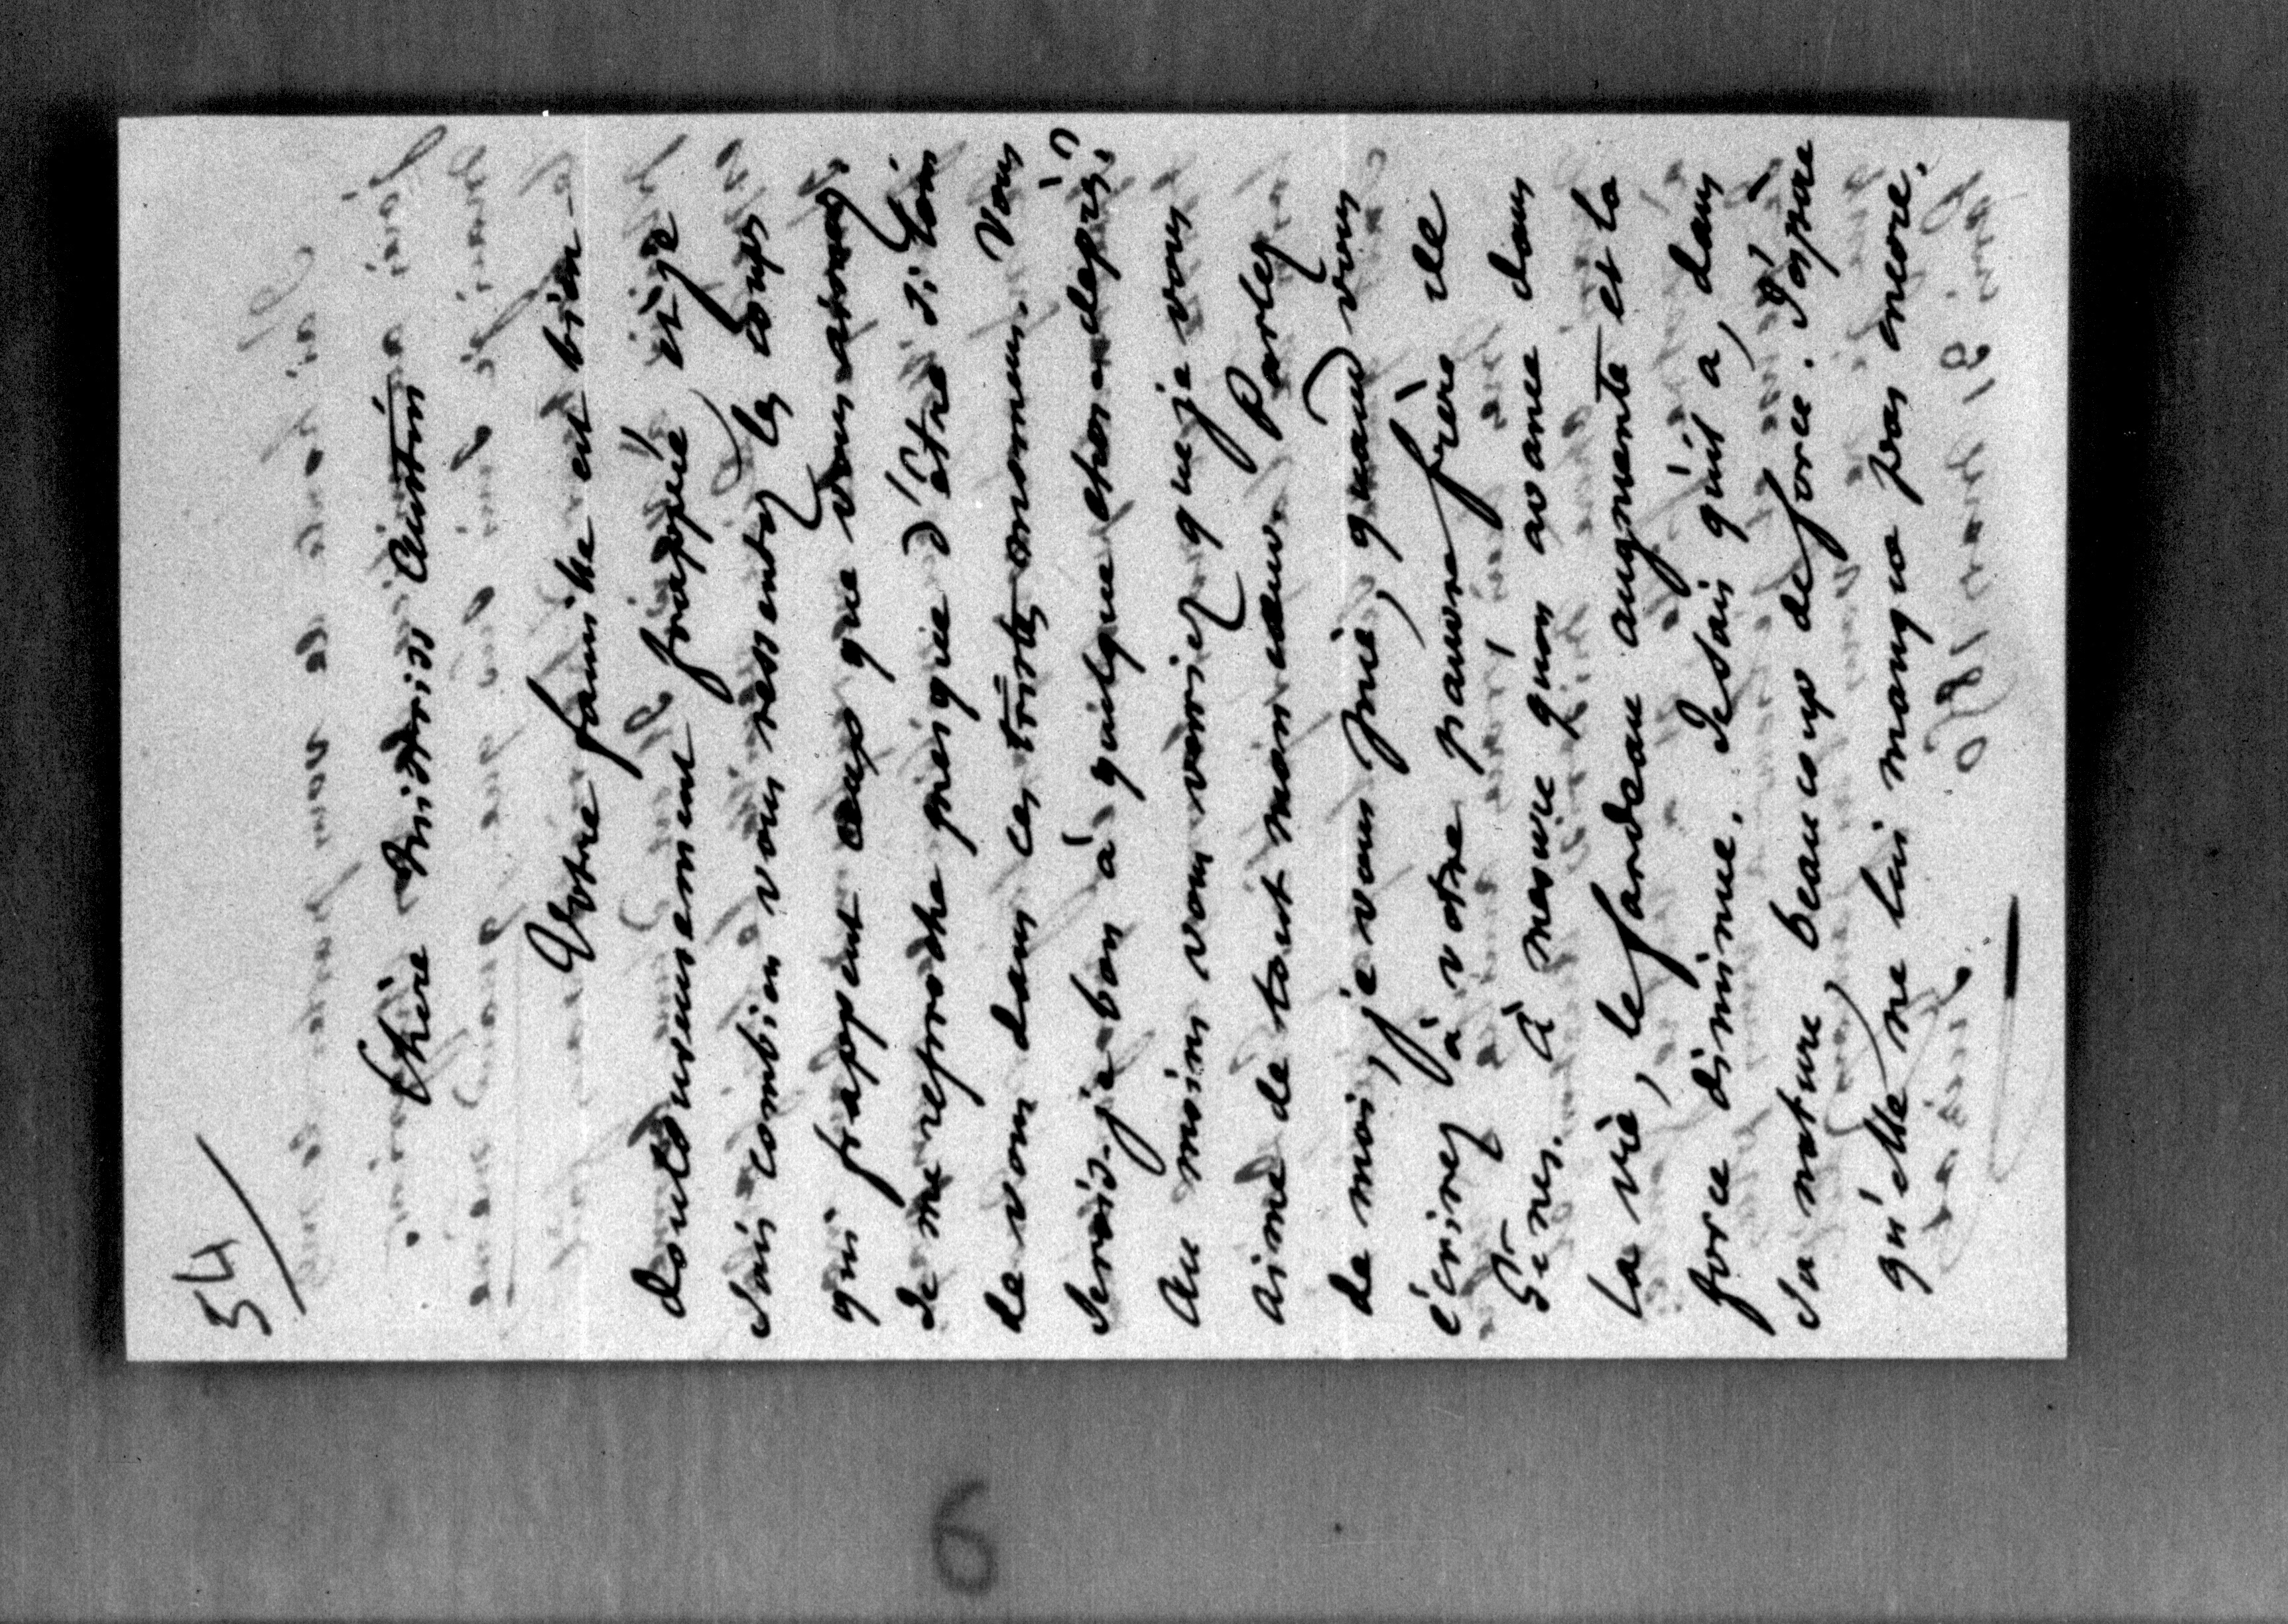 54/
Chère Miss Austin
Votre famille est bien
douloureusement frappée et je
sais combien vous ressentez les coups
qui frappent ceux que vous aimez.
Je me reproche presque d'être si loin
de vous dans ces tristes momens. Vous
serais-je bon à quelque chose de près?
Au moins vous verriez que je vous
aime de tout mon cœur. Parlez
de moi, je vous prie, quand vous
écrirez à votre pauvre frère de
À mesure qu'on avance dans
la vie, le fardeau augmente et la
force diminue. Je sais qu'il a, dans
sa nature, beaucoup de force. J'espère
qu'elle ne lui manqua pas encore.
6